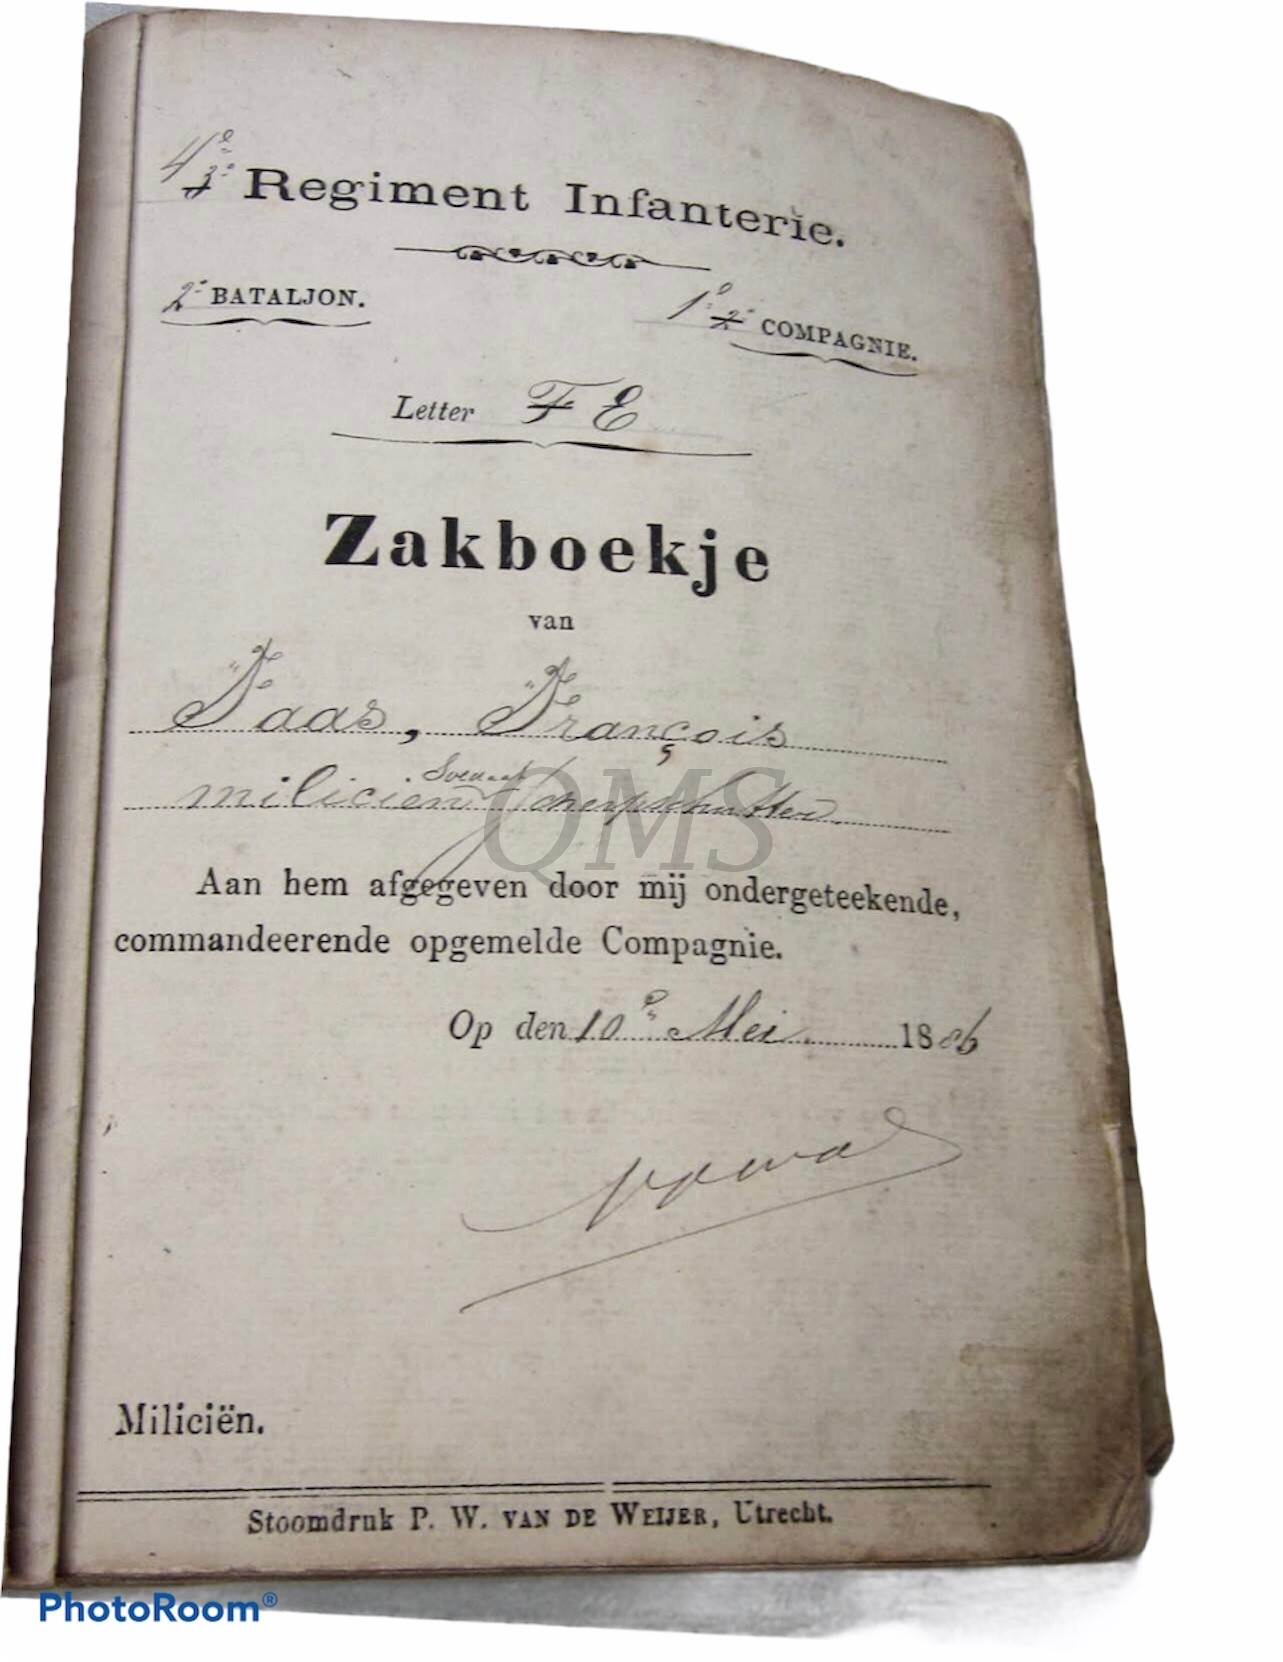 4e 3e Regiment Infanterie.
2e BATALJON.
1e 2e COMPAGNIE.
Letter F E
Zakboekje
van
Faas, François
Soldaat
milicien Scherpschutter
QMS
Aan hem afgegeven door mij ondergeteekende,
commandeerende opgemelde Compagnie.
Op den 10e Mei 1886
Miliciën.
Stoomdruk P. W. VAN DE WEIJER, Utrecht.
PhotoRoom®